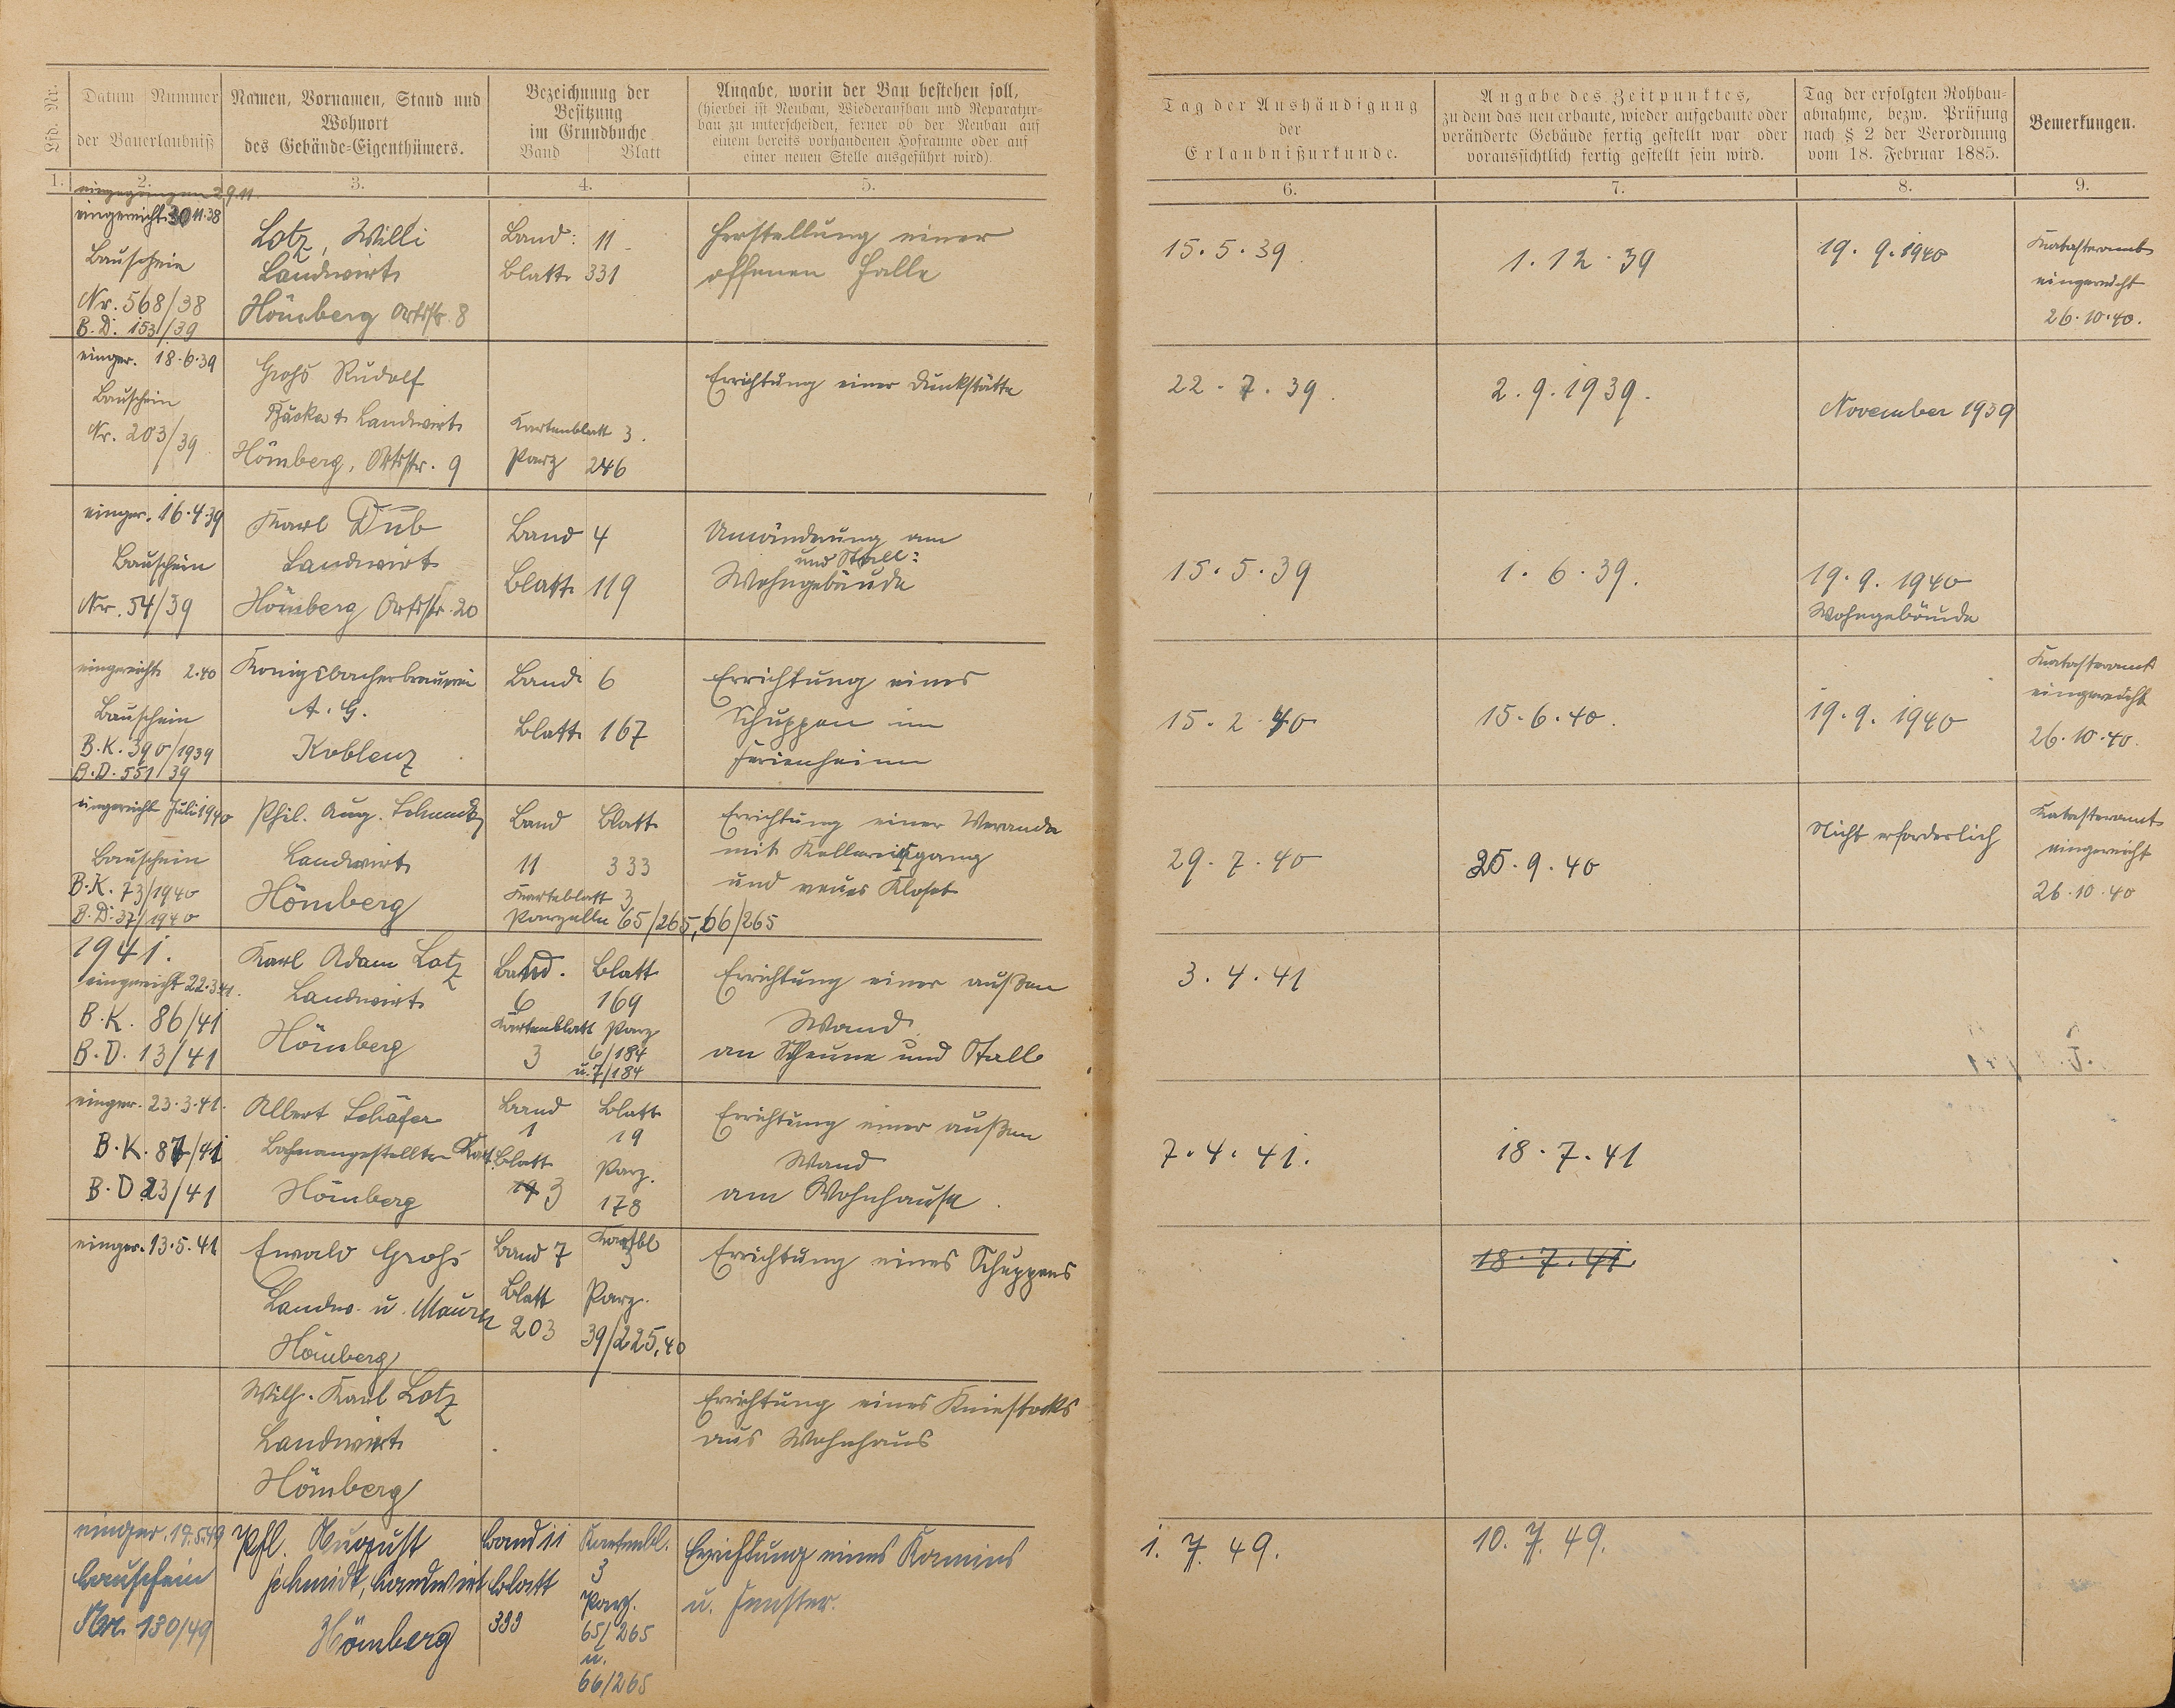 Lfd. Nr.
Datum Nummer
der Bauerlaubniß
Namen, Vornamen, Stand und
Wohnort
des Gebäude-Eigenthümers.
Bezeichnung der
Besitzung
im Grundbuche
Band Blatt
Angabe, worin der Bau bestehen soll,
(hierbei ist Neubau, Wiederaufbau und Reparatur-
bau zu unterscheiden, ferner ob der Neubau auf
einem bereits vorhandenen Hofraume oder auf
einer neuen Stelle ausgeführt wird).
Tag der Aushändigung
der
Erlaubnißurkunde.
Angabe des Zeitpunktes,
zu dem das neu erbaute, wieder aufgebaute oder
veränderte Gebäude fertig gestellt war oder
voraussichtlich fertig gestellt sein wird.
Tag der erfolgten Rohbau-
abnahme, bezw. Prüfung
nach § 2 der Verordnung
vom 18. Februar 1885.
Bemerkungen.
1. 2. 3. 4. 5. 6. 7. 8. 9.
eingegangen 29.11.
eingereicht 30.11.38
Bauschein
Nr. 568/38
B.D. 153/39
Lotz, Willi
Landwirt
Hömberg Ortsstr. 8
Band: 11
Blatt 331
Herstellung einer
offenen Halle
15.5.39
1.12.39
19.9.1940
Katasteramt
eingereicht
26.10.40.
einger. 18.6.39
Bauschein
Nr. 203/39
Grohs Rudolf
Bäcker & Landwirt
Hömberg, Ortsstr. 9
Kartenblatt 3.
Parz 246
Errichtung einer Dunkstätte
22.7.39.
2.9.1939.
November 1939
einger. 16.4.39
Bauschein
Nr. 54/39
Karl Dub
Landwirt
Hömberg Ortsstr. 20
Band 4
Blatt 119
Umänderung am
und Stall:
Wohngebäude
15.5.39
1.6.39.
19.9.1940
Wohngebäude
eingereicht 2.40
Bauschein
B.K. 390/1939
B.D. 551/39
Königsbacherbrauerei
A.G.
Koblenz
Band 6
Blatt 167
Errichtung eines
Schuppen im
Ferienheim
15.2.40
15.6.40.
19.9.1940
Katasteramt
eingereicht
26.10.40.
eingereicht Juli 1940
Bauschein
B.K. 73/1940
B.D. 37/1940
Phil. Aug.
Landwirt
Hömberg
Band Blatt
11 333
Karteblatt 3
Parzelle 65/265, 66/265
Errichtung einer Veranda
mit Kellereingang
und neues Kloset
29.7.40
25.9.40
Nicht erforderlich
Katasteramt
eingereicht
26.10.40
1941.
eingereicht 22.3.41.
B.K. 86/41
B.D. 13/41
Karl Adam Lotz
Landwirt
Hömberg
Band. Blatt
6 169
Kartenblatt Parz.
3 6/184
u. 7/184
Errichtung einer außen
Wand
an Scheune und Stall
3.4.41
einger. 23.3.41.
B.K. 87/41
B.D. 23/41
Albert Schäfer
Bahnangestellter
Hömberg
Band Blatt
1 19
Kart.Blatt Parz.
19 3 178
Errichtung einer außen
Wand
am Wohnhause.
7.4.41.
18.7.41
einger. 13.5.41
Ewald Grohs
Landw. u. Maurer
Hömberg
Band 7 Kartbl
3
Blatt Parz.
203 39/225,40
Errichtung eines Schuppens
18.7.41.
Wilh. Karl Lotz
Landwirt
Hömberg
Errichtung eines Kniestocks
aus Wohnhaus
einger. 17.5.49
Bauschein
Nr. 130/49
Phl. August
Schmidt, Landwirt
Hömberg
Band 11 Kartenbl.
3
Blatt Parz.
333 65/265
u.
66/265
Errichtung eines Kamins
u. Fenster.
1.7.49.
10.7.49.